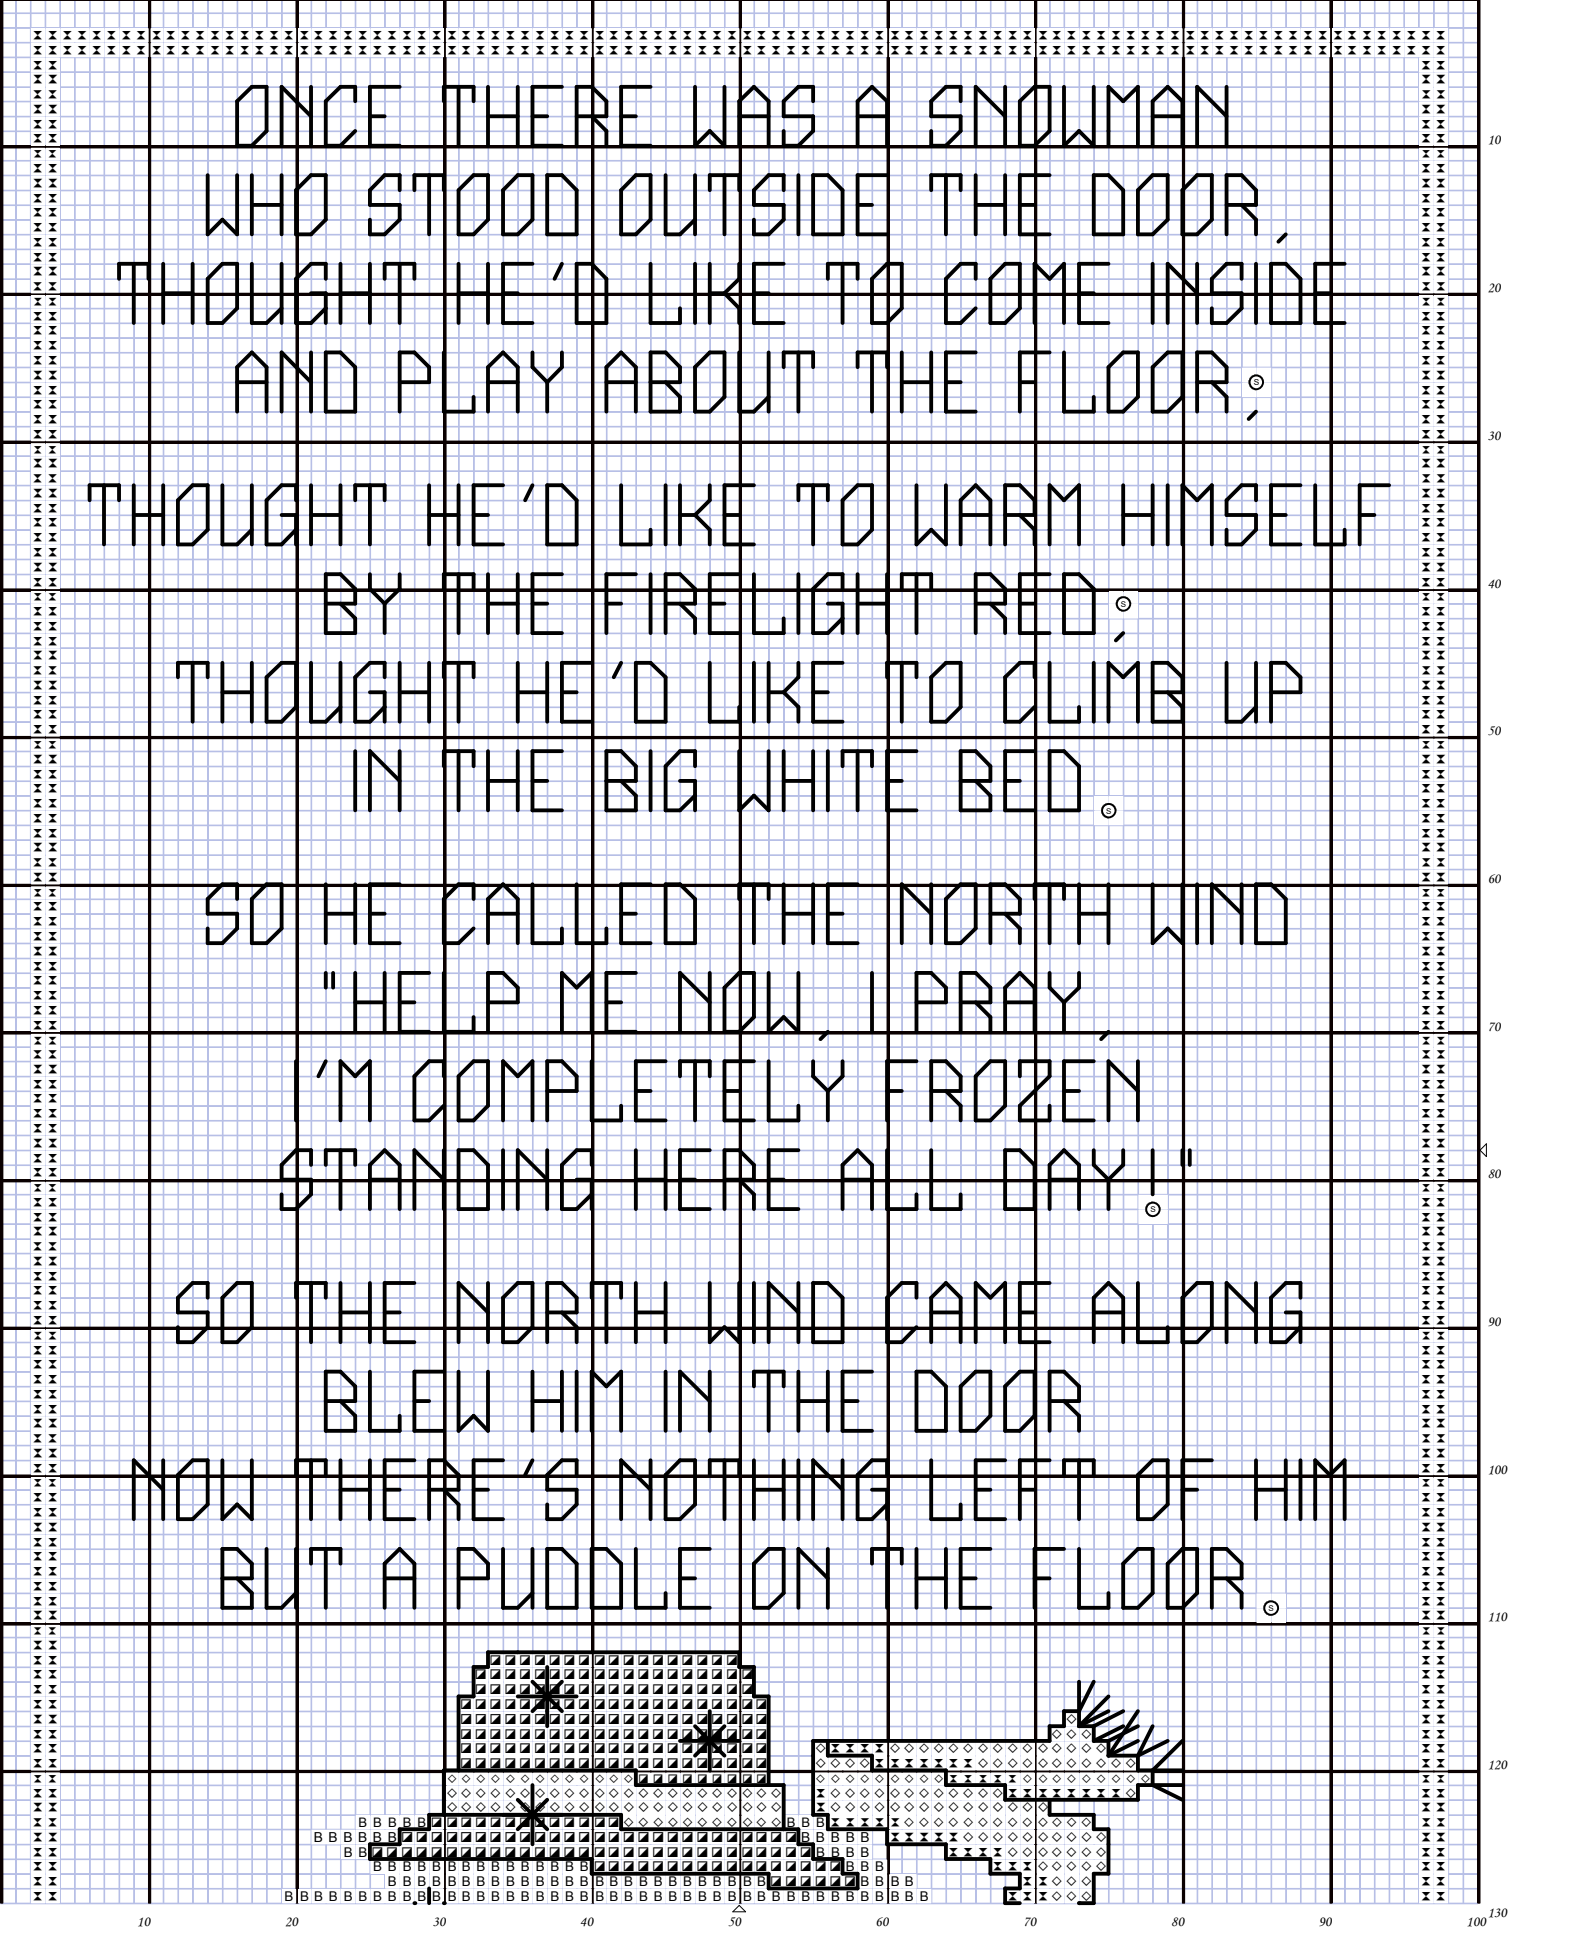 ONCE THERE WAS A SNOWMAN
WHO STOOD OUTSIDE THE DOOR,
THOUGHT HE'D LIKE TO COME INSIDE
AND PLAY ABOUT THE FLOOR;
THOUGHT HE'D LIKE TO WARM HIMSELF
BY THE FIRELIGHT RED;
THOUGHT HE'D LIKE TO CLIMB UP
IN THE BIG WHITE BED.
SO HE CALLED THE NORTH WIND
"HELP ME NOW, I PRAY,
I'M COMPLETELY FROZEN
STANDING HERE ALL DAY!"
SO THE NORTH WIND CAME ALONG
BLEW HIM IN THE DOOR
NOW THERE'S NOTHING LEFT OF HIM
BUT A PUDDLE ON THE FLOOR.
10
20
30
40
50
60
70
80
90
100
110
120
130
10 20 30 40 50 60 70 80 90 100